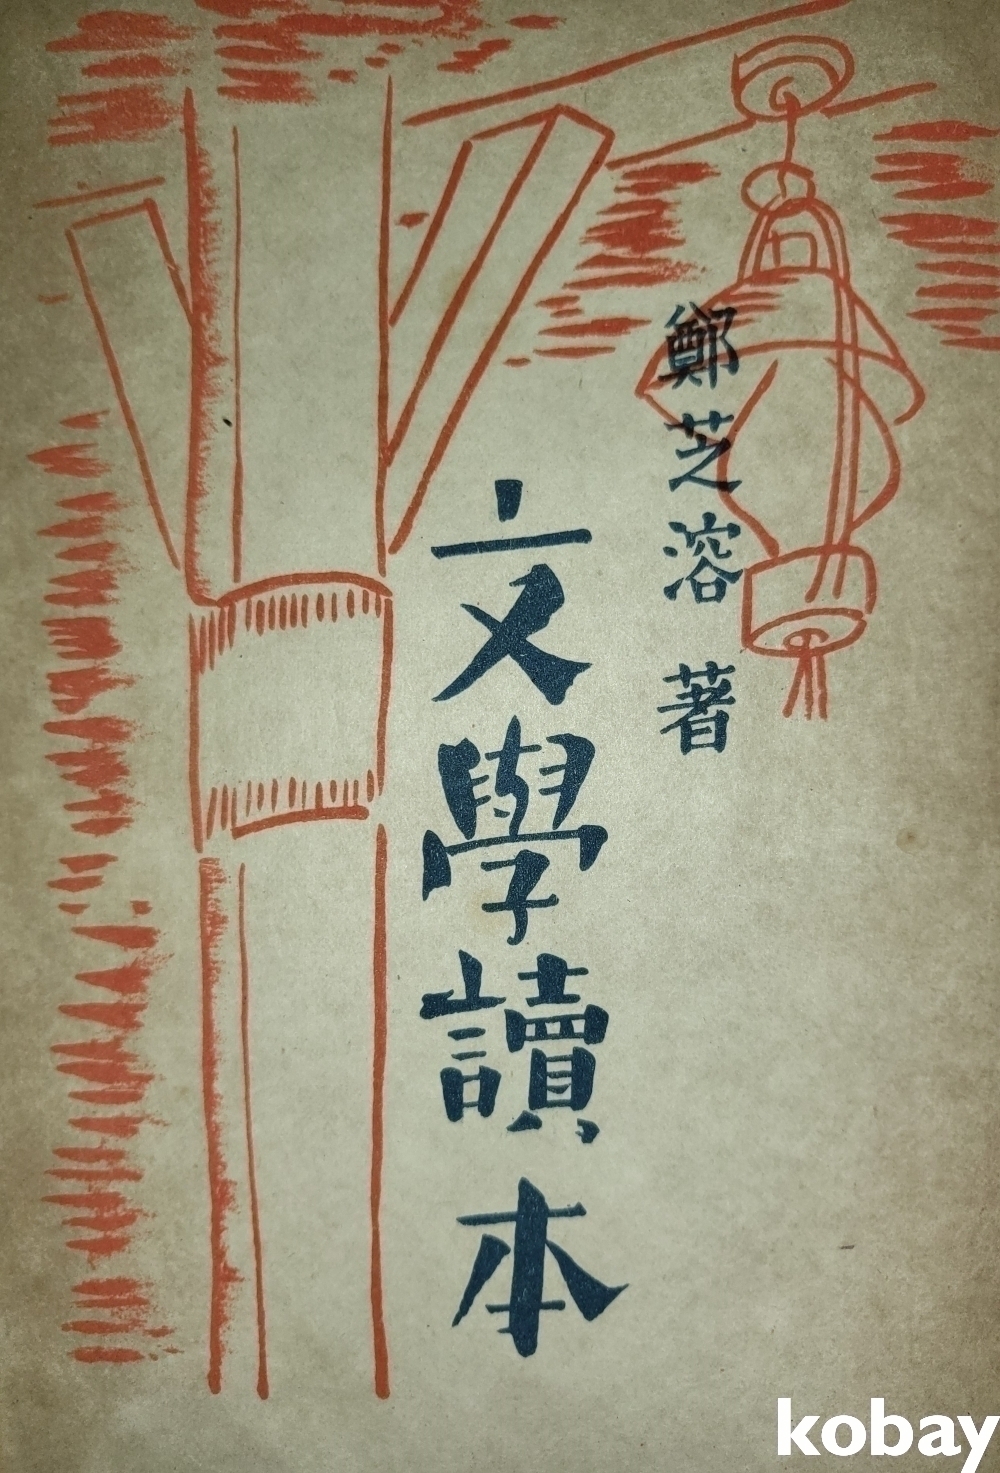 鄭芝溶 著
文學讀本
kobay